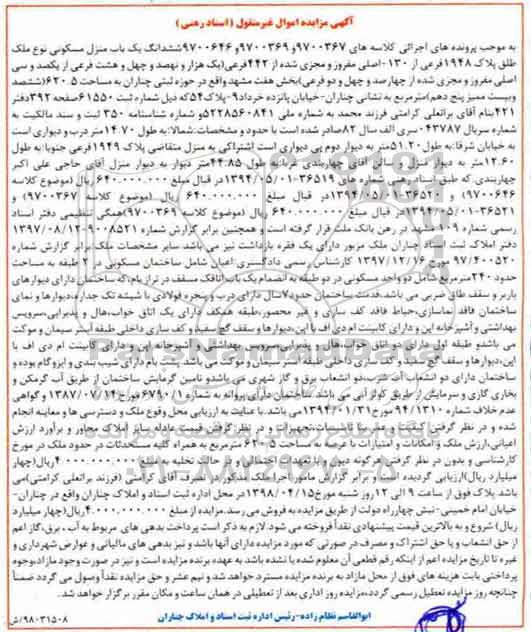 آگهی مزایده اموال غیرمنقول (اسناد رهنی)
به موجب پرونده های اجرائی کلاسه های ۹۷۰۰۳۶۷و ۹۷۰۰۳۶۹و ۹۷۰۰۶۴۶ششدانگ یک باب منزل مسکونی نوع ملک
طلق پلاک ۱۹۴۸فرعی از ۱۳۰-اصلی مفروز و مجزی شده از ۴۴۲فرعی(یک هزار و نهصد و چهل و هشت فرعی از یکصد و سی
اصلی مفروز و مجزی شده از چهارصد و چهل و دو فرعی)بخش هفت مشهد واقع در حوزه ثبتی چناران به مساحت ۶۲۰.۵(ششصد
وبیست ممیز پنج دهم)مترمربع به نشانی چناران-خیابان پانزده خرداد۹-پلاک۵۴که ذیل شماره ثبت ۶۱۵۵۰صفحه ۳۹۲دفتر
۴۲۱بنام آقای براتعلی کرامتی فرزند محمد به شماره ملی ۵۲۲۸۵۶۰۸۴۱و شماره شناسنامه ۳۵۰ ثبت و سند مالکیت به
شماره سریال ۰۴۳۷۸۷ سری الف سال ۸۲صادر شده است با حدود و مشخصات:شمالا:به طول ۱۴.۷۰ متر درب و دیواری است
به خیابان شرقا:به طول ۵۱.۲۰متر به دیوار دوم پی دیواری است اشتراکی به منزل متقاضی پلاک ۱۹۴۹فرعی جنوبا:به طول
۱۲.۶۰متر به دیوار منزل و سالن آقای چهاربندی غربا:به طول ۴۴.۸۵متر دیوار به دیوار منزل آقای حاجی علی اکبر
چهاربندی.که طبق اسناد رهنی شماره های ۳۶۵۱۹-۱۳۹۴/۰۵/۰۱در قبال مبلغ ۶۴۰.۰۰۰.۰۰۰ ریال (موضوع کلاسه
۹۷۰۰۶۴۶) و ۳۶۵۲۰-۱۳۹۴/۰۵/۰۱در قبال مبلغ ۶۴۰.۰۰۰.۰۰۰ ریال (موضوع کلاسه ۹۷۰۰۳۶۷) و
۳۶۵۲۱-۱۳۹۴/۰۵/۰۱در قبال مبلغ ۶۴۰.۰۰۰.۰۰۰ ریال (موضوع کلاسه ۹۷۰۰۳۶۹)همگی تنظیمی دفتر اسناد
رسمی شماره ۱۰۹ مشهد در رهن بانک ملت قرار گرفته است و همچنین برابر گزارش شماره ۹۰۰۸۵۲۱-۱۳۹۷/۰۸/۱۲
دفتر املاک ثبت اسناد چناران ملک مزبور دارای یک فقره بازداشت نیز می باشد سایر مشخصات ملک:برابر گزارش شماره
۹۷/۴۰۰۵۲۰ مورخ ۱۳۹۷/۱۲/۱۶ کارشناس رسمی دادگستری:اعیان شامل ساختمان مسکونی در ۲ طبقه به مساحت
حدود ۲۴۰مترمربع شامل دو واحد مسکونی در دو طبقه به انضمام یک باب اتاقک مسقف در تراز بام،که ساختمان دارای دیوارهای
باربر و سقف طاق ضربی می باشد.قدمت ساختمان حدود۷سال دارای درب و پنجره فولادی با شیشه تک جداره،دیوارها و نمای
ساختمان فاقد نماسازی،حیاط فاقد کف سازی و غیر محصور،طبقه همکف دارای یک اتاق خواب،هال و پذیرایی،سرویس
بهداشتی و آشپزخانه اپن و دارای کابینت ام دی اف با اپن،دیوارها و سقف گچ سفید و کف سازی داخلی طبقه آستر سیمان و موکت
می باشدو طبقه اول دارای دو اتاق خواب،هال و پذیرایی،سرویس بهداشتی و آشپزخانه اپن و دارای کابینت ام دی اف با
اپن،دیوارها و سقف گچ سفید و کف سازی داخلی طبقه آستر سیمان و موکت می باشد کف بام دارای شیب بندی و ایزوگام بوده و
ساختمان دارای دو انشعاب آب شرب،دو انشعاب برق و گاز شهری می باشدو تامین گرمایش ساختمان از طریق آب گرمکن و
بخاری گازی و سرمایش از طریق کولر آبی می باشد ساختمان دارای پروانه به شماره ۶۷۹۰/۱مورخ ۱۳۸۷/۰۷/۱۴و گواهی
عدم خلاف شماره ۹۴/۱۳۱۰ مورخ ۱۳۹۴/۰۱/۳۱ می باشد.با عنایت به ارزیابی محل وقوع ملک و دسترسی ها و معاینه انجام
شده و در نظر گرفتن اثر نما تاسیسات،تجهیزات و در نظر گرفتن قیمت عادله سایر املاک مجاور و برآورد ارزش
اعیانی،ارزش ملک و امکانات و امتیازات با عرصه به مساحت ۶۲۰.۵ مترمربع به همراه کلیه مستحدثات در حدود ملک در مورخ
کارشناسی و بدون در نظر گرفتن هرگونه دیون و یا تعهدات احتمالی و در حال تخلیه به مبلغ ۴.۰۰۰.۰۰۰.۰۰۰ ریال(چهار
میلیارد ریال)ارزیابی گردیده است و برابر گزارش مامور اجرا ملک مذکور در تصرف آقای کرامتی (فرزند براتعلی کرامتی)می
باشد پلاک فوق از ساعت ۹ الی ۱۲ روز شنبه مورخ ۱۳۹۸/۰۴/۱۵در محل اداره ثبت اسناد و املاک چناران واقع در چناران-
خیابان امام خمینی-نبش چهارراه دولت از طریق مزایده به فروش می رسد.مزایده از مبلغ ۴.۰۰۰.۰۰۰.۰۰۰ریال(چهار میلیارد
ریال) شروع و به بالاترین قیمت پیشنهادی نقداً فروخته می شود.لازم به ذکر است پرداخت بدهی های مربوط به آب،برق،گاز اعم
از حق انشعاب و یا حق اشتراک و مصرف در صورتی که مورد مزایده دارای آنها باشد و نیز بدهی های مالیاتی و عوارض شهرداری و
غیره تا تاریخ مزایده اعم از اینکه رقم قطعی آن معلوم شده یا نشده باشد به عهده برنده مزایده است و نیز در صورت وجود مازاد،وجوه
پرداختی بابت هزینه های فوق از محل مازاد به برنده مزایده مسترد خواهد شد و نیم عشر و حق مزایده نقداً وصول می گردد ضمناً
چنانچه روز مزایده تعطیل رسمی گردد،مزایده روز اداری بعد از تعطیلی در همان ساعت و مکان مقرر برگزار خواهد شد.
ابوالقاسم نظام زاده-رئیس اداره ثبت اسناد و املاک چناران
۹۸۰۳۱۵۰۸/ش